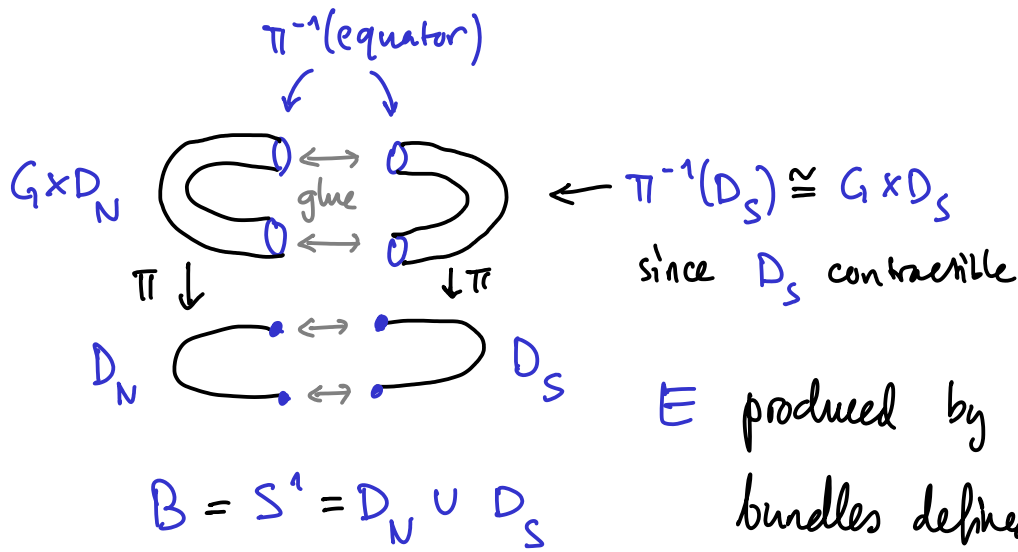 π⁻¹(equator)
G×D_N
glue
π⁻¹(D_S) ≅ G×D_S
since D_S contractible
π
π
D_N
D_S
E produced by
B = S¹ = D_N ∪ D_S
bundles define